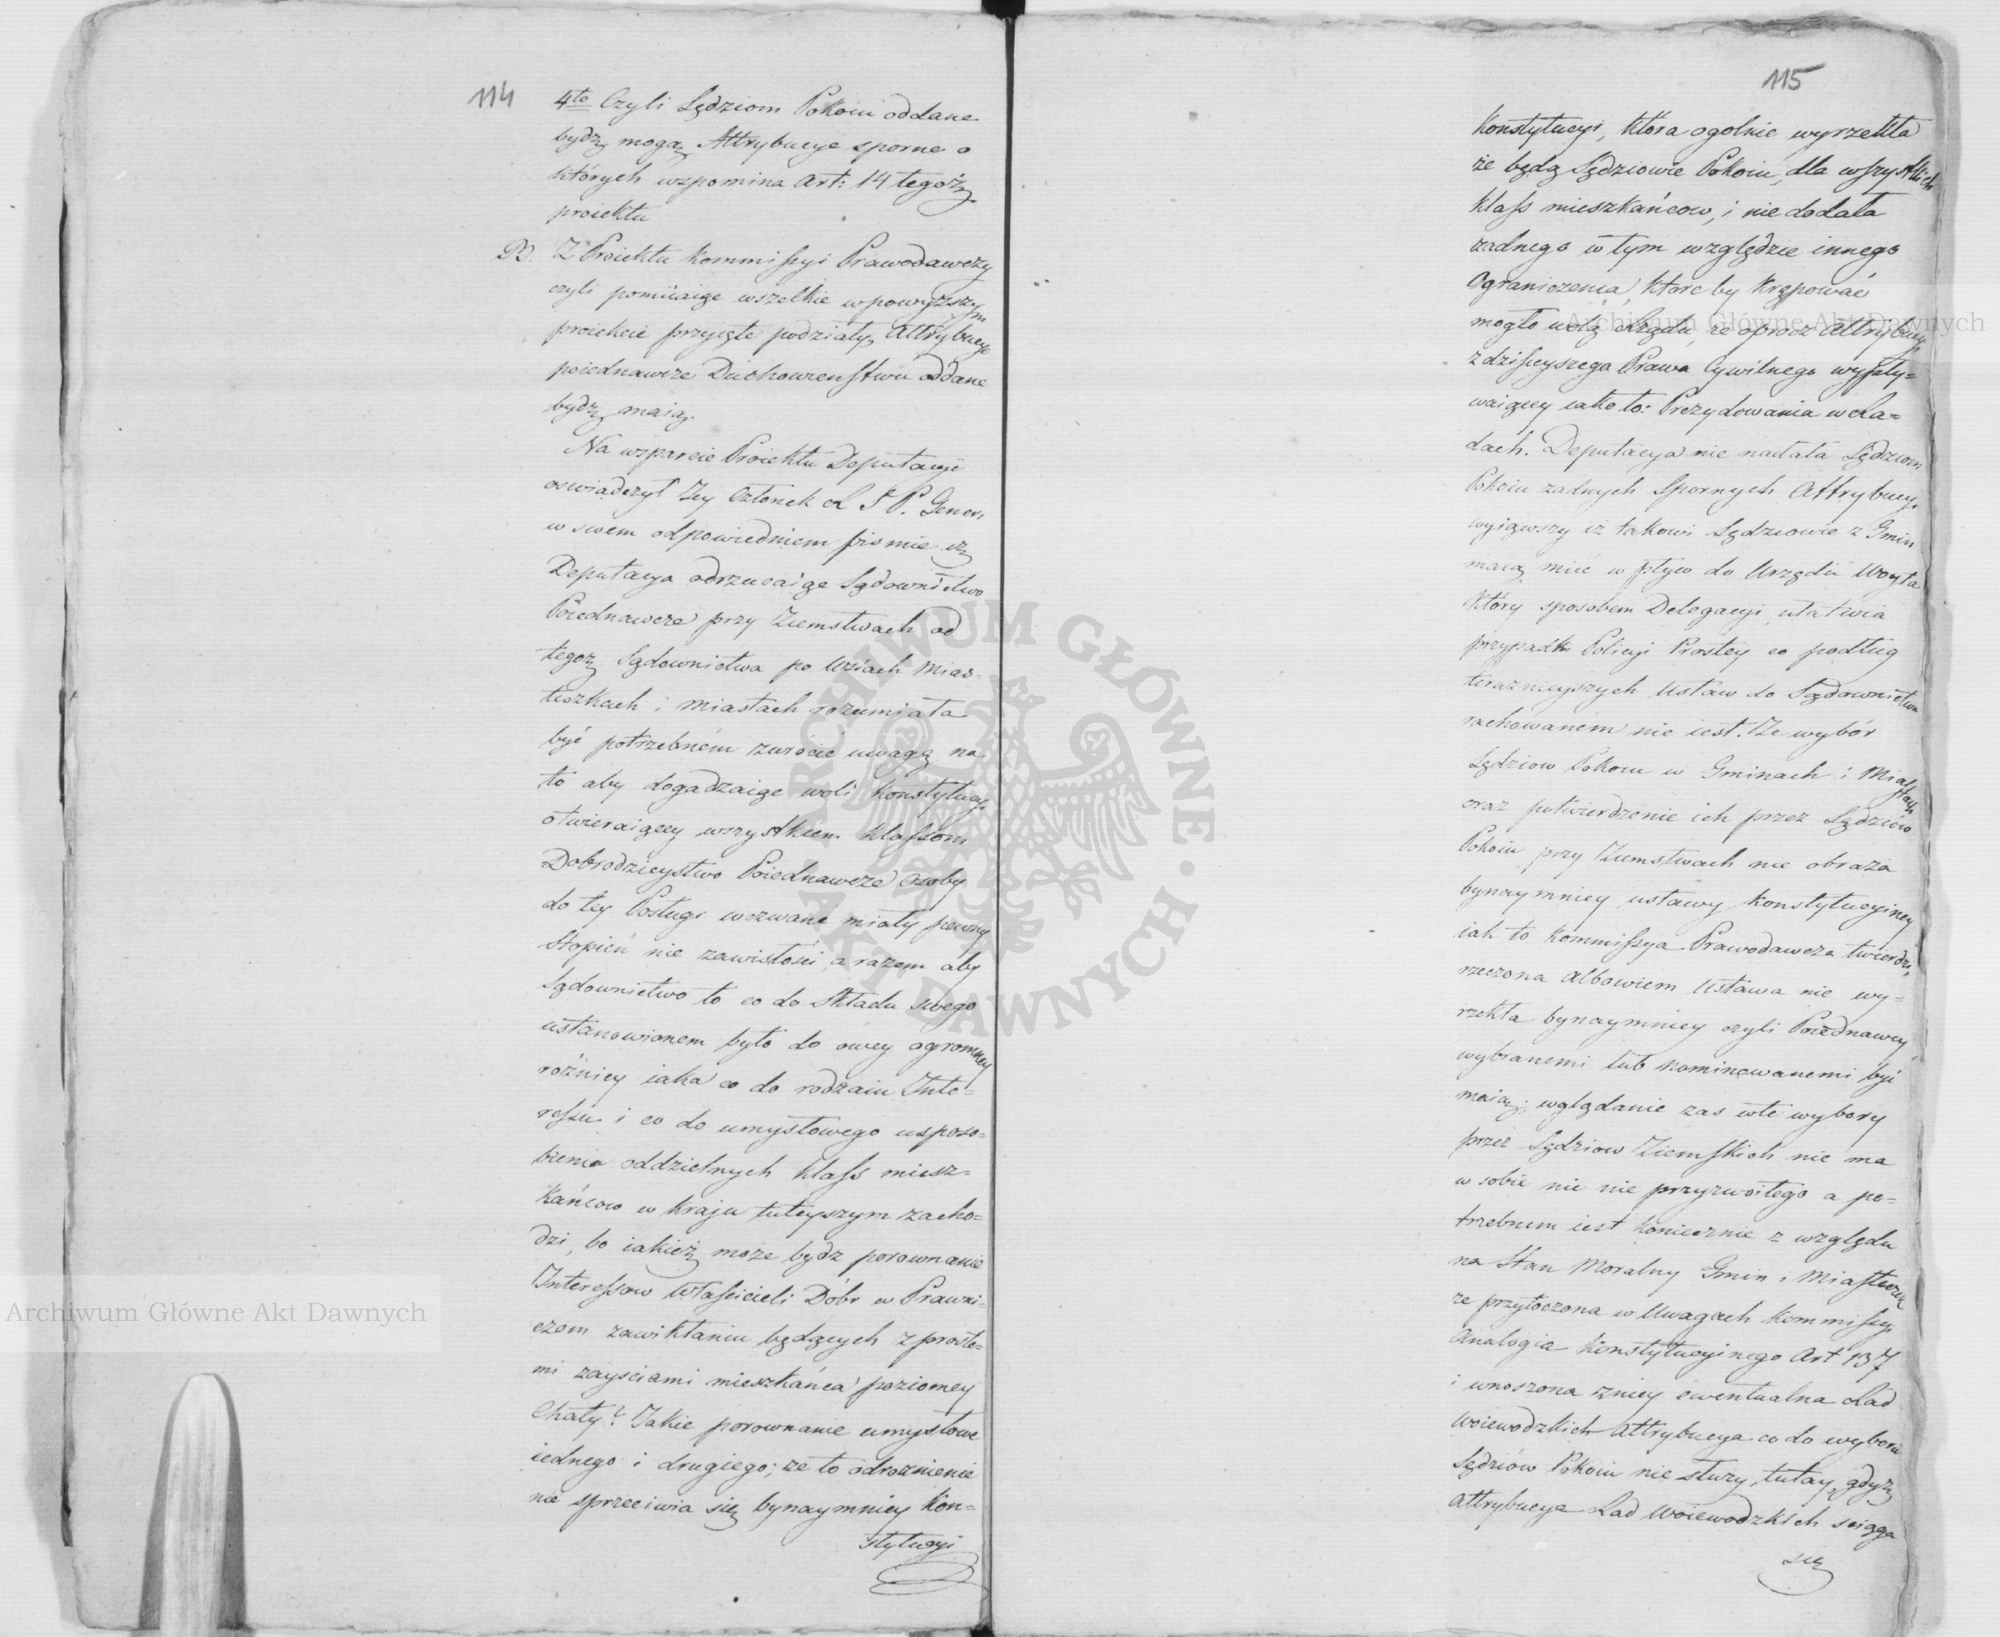 114
4to Czyli Sędziom Pokoiu oddane
bydź mogą Attrybucye sporne o
których wspomina Art: 14 tegoż
proiektu
B. Z Proiektu Kommissyi Prawodawczy
czyli pomiiaiąc wszelkie w powyższym
proiekcie przyięte podziały, Attrybucye
poiednawcze Duchowieństwu oddane
bydź maią.
Na wsparcie Proiektu Deputacyi
oswiadczył Jey Członek R J P. Gener:
w swem odpowiedniem piśmie iż
Deputacya odrzucaiąc Sądownictwo
Poiednawcze przy Ziemstwach od
tegoż Sądownictwa po Wsiach Mias-
teczkach i miastach rozumiała
być potrzebném zwrócić uwagę na
to aby dogadzaiąc woli Konstytucyi
otwieraiącey wszystkiem klassom
Dobrodzieystwo Poiednawcze Osoby
do tey Posługi wezwane miały pewny
Stopień nie zawisłości, a razem aby
Sądownictwo to co do składu swego
ustanowionem było do owey ogromney
różnicy iaka co do rodzaiu Inte-
ressu i co do umysłowego usposo-
bienia oddzielnych klass miesz-
kańcow w kraju tuteyszym zacho-
dzi, bo iakież może bydz porownanie
Interessow Właścicieli Dóbr w Prawni-
czem zawikłaniu będących z proste-
mi zayściami mieszkańca poziomey
Chaty? Jakie porownanie umysłowe
iednego i drugiego; że to odroznienie
nie sprzeciwia się bynaymniey Kon-
stytucyi
115
Konstytucyi, która ogolnie wyrzekła
że będą Sędziowie Pokoiu, dla wszystkich
klass mieszkańcow, i nie dodała
zadnego w tym względzie innego
Ograniczenia, które by krępować
mogło wolą Rządu, że oprocz Attrybucyi
z dzisieyszego Prawa Cywilnego wypły-
waiącey iako to: Prezydowania w Ra-
dach. Deputacya nie nadała Sędziom
Pokoiu zadnych Spornych Attrybucyi,
wyiąwszy iż takowi Sędziowie z Gmin
maią mieć wpływ do Urzędu Woyta
który sposobem Delegacyi, ułatwia
przypadki Policyi Prostey co podług
teraznieyszych Ustaw do Sądownictwa
rachowanem nie iest. Ze wybór
Sędziow Pokoiu w Gminach i Miastach
oraz potwierdzenie ich przez Sędziów
Pokoiu przy Ziemstwach nie obraża
bynaymniey ustawy Konstytucyiney
iak to Kommissya Prawodawcza twierdzi,
rzeczona albowiem Ustawa nie wy-
rzekła bynaymniey czyli Poiednawcy
wybranemi lub nominowanemi być
maią; wglądanie zas w te wybory
przez Sędziow Ziemskich nie ma
w sobie nic nie przyzwoitego a po-
trzebnem iest koniecznie z względu
na Stan Moralny Gmin i Miasteczek
ze przytoczona w Uwagach Kommissyi
Analogia Konstytucyinego Art 137
i wnoszona z niey ewentualna Rad
Woiewodzkich Attrybucya co do wyboru
Sędziów Pokoiu nie służy tutay, gdyż
Attrybucya Rad Woiewodzkich ściąga
się
Archiwum Główne Akt Dawnych
Archiwum Główne Akt Dawnych
ARCHIWUM GŁÓWNE · AKT DAWNYCH ·